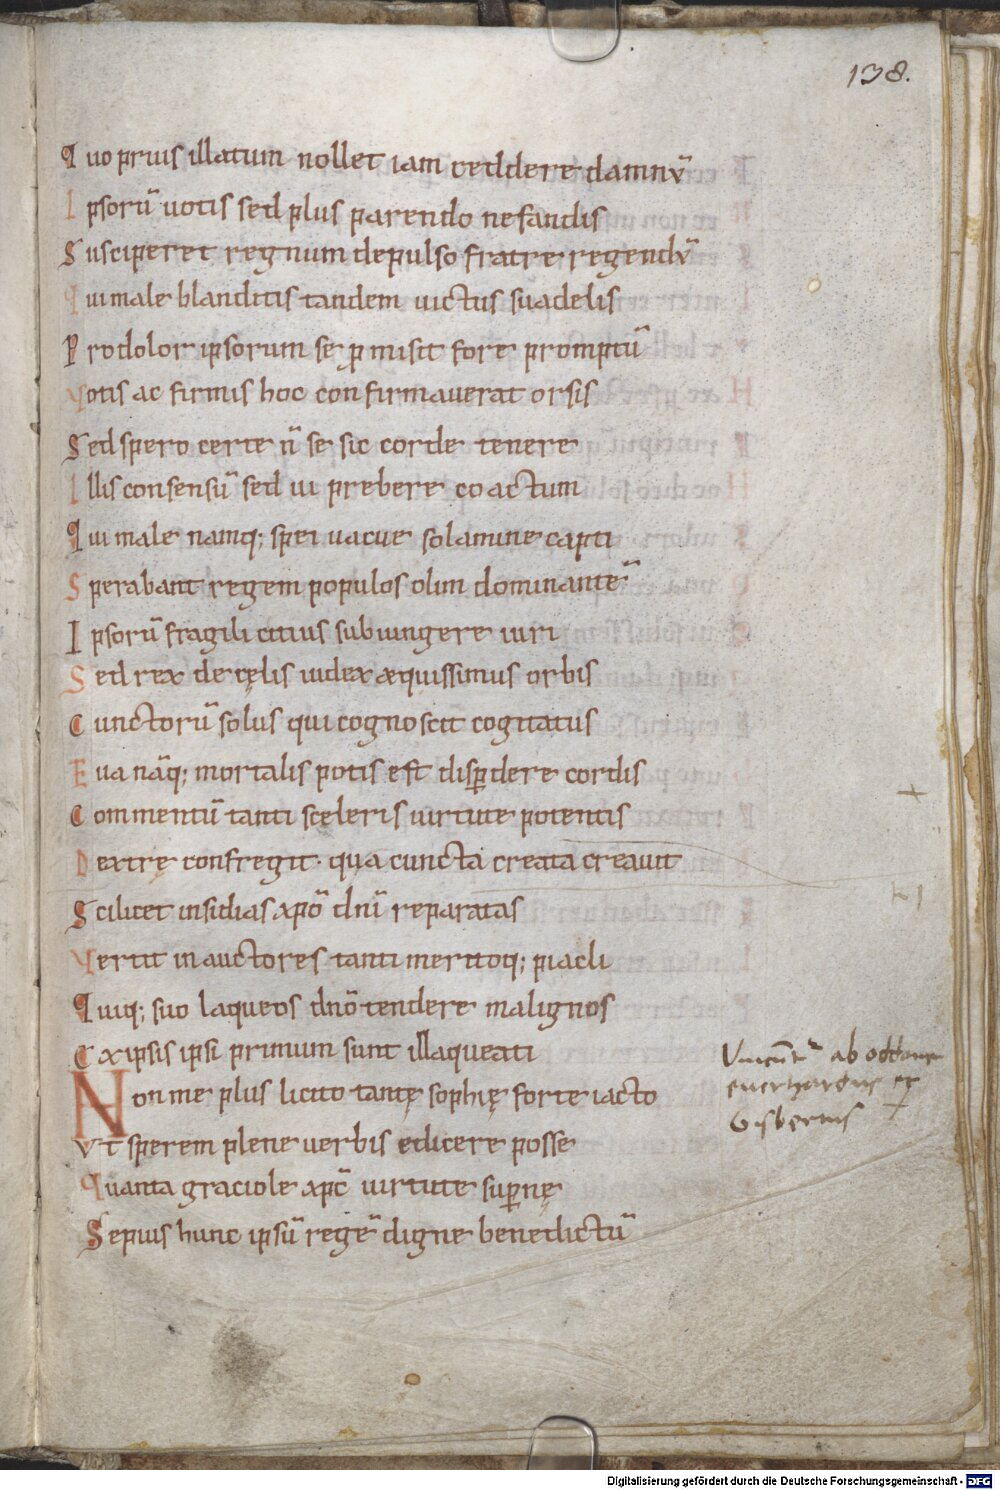 138.
Quo prius illatum nollet iam reddere damnū
Ipsorū uotis sed plus parendo nefandis
Susciperet regnum depulso fratre regendū
Qui male blanditis tandem uictus suadelis
Prodolor ipsorum se ꝓmisit fore promptū
Votis ac firmis hoc confirmauerat orsis
Sed spero certe n̄ se sic corde tenere
Illis consensū sed ui prebere coactum
Qui male namq; spei uacue solamine capti
Sperabant regem populos olim dominantē
Ipsorū fragili citius subiungere iuri
Sed rex de cęlis iudex æquissimus orbis
Cunctorū solus qui cognoscit cogitatus
Eua nāq; mortalis potis est disꝑdere cordis
Commentū tanti sceleris uirtute potentis
Dextrę confregit· qua cuncta creata creauit
Scilicet insidias xpō dn̄ū reparatas
Vertit in auctores tanti meritoq; piacli
Quiq; suo laqueos dn̄o tendere malignos
Ex ipsis ipsi primum sunt illaqueati
Non me plus licito tantę sophię forte iacto
Vt sperem plene uerbis edicere posse
Quanta graciole xpc̄ uirtute suꝑnę
Sepius hunc ipsū regē digne benedictū
ab oddone
euerhardus et
Gisbertus
Digitalisierung gefördert durch die Deutsche Forschungsgemeinschaft - DFG